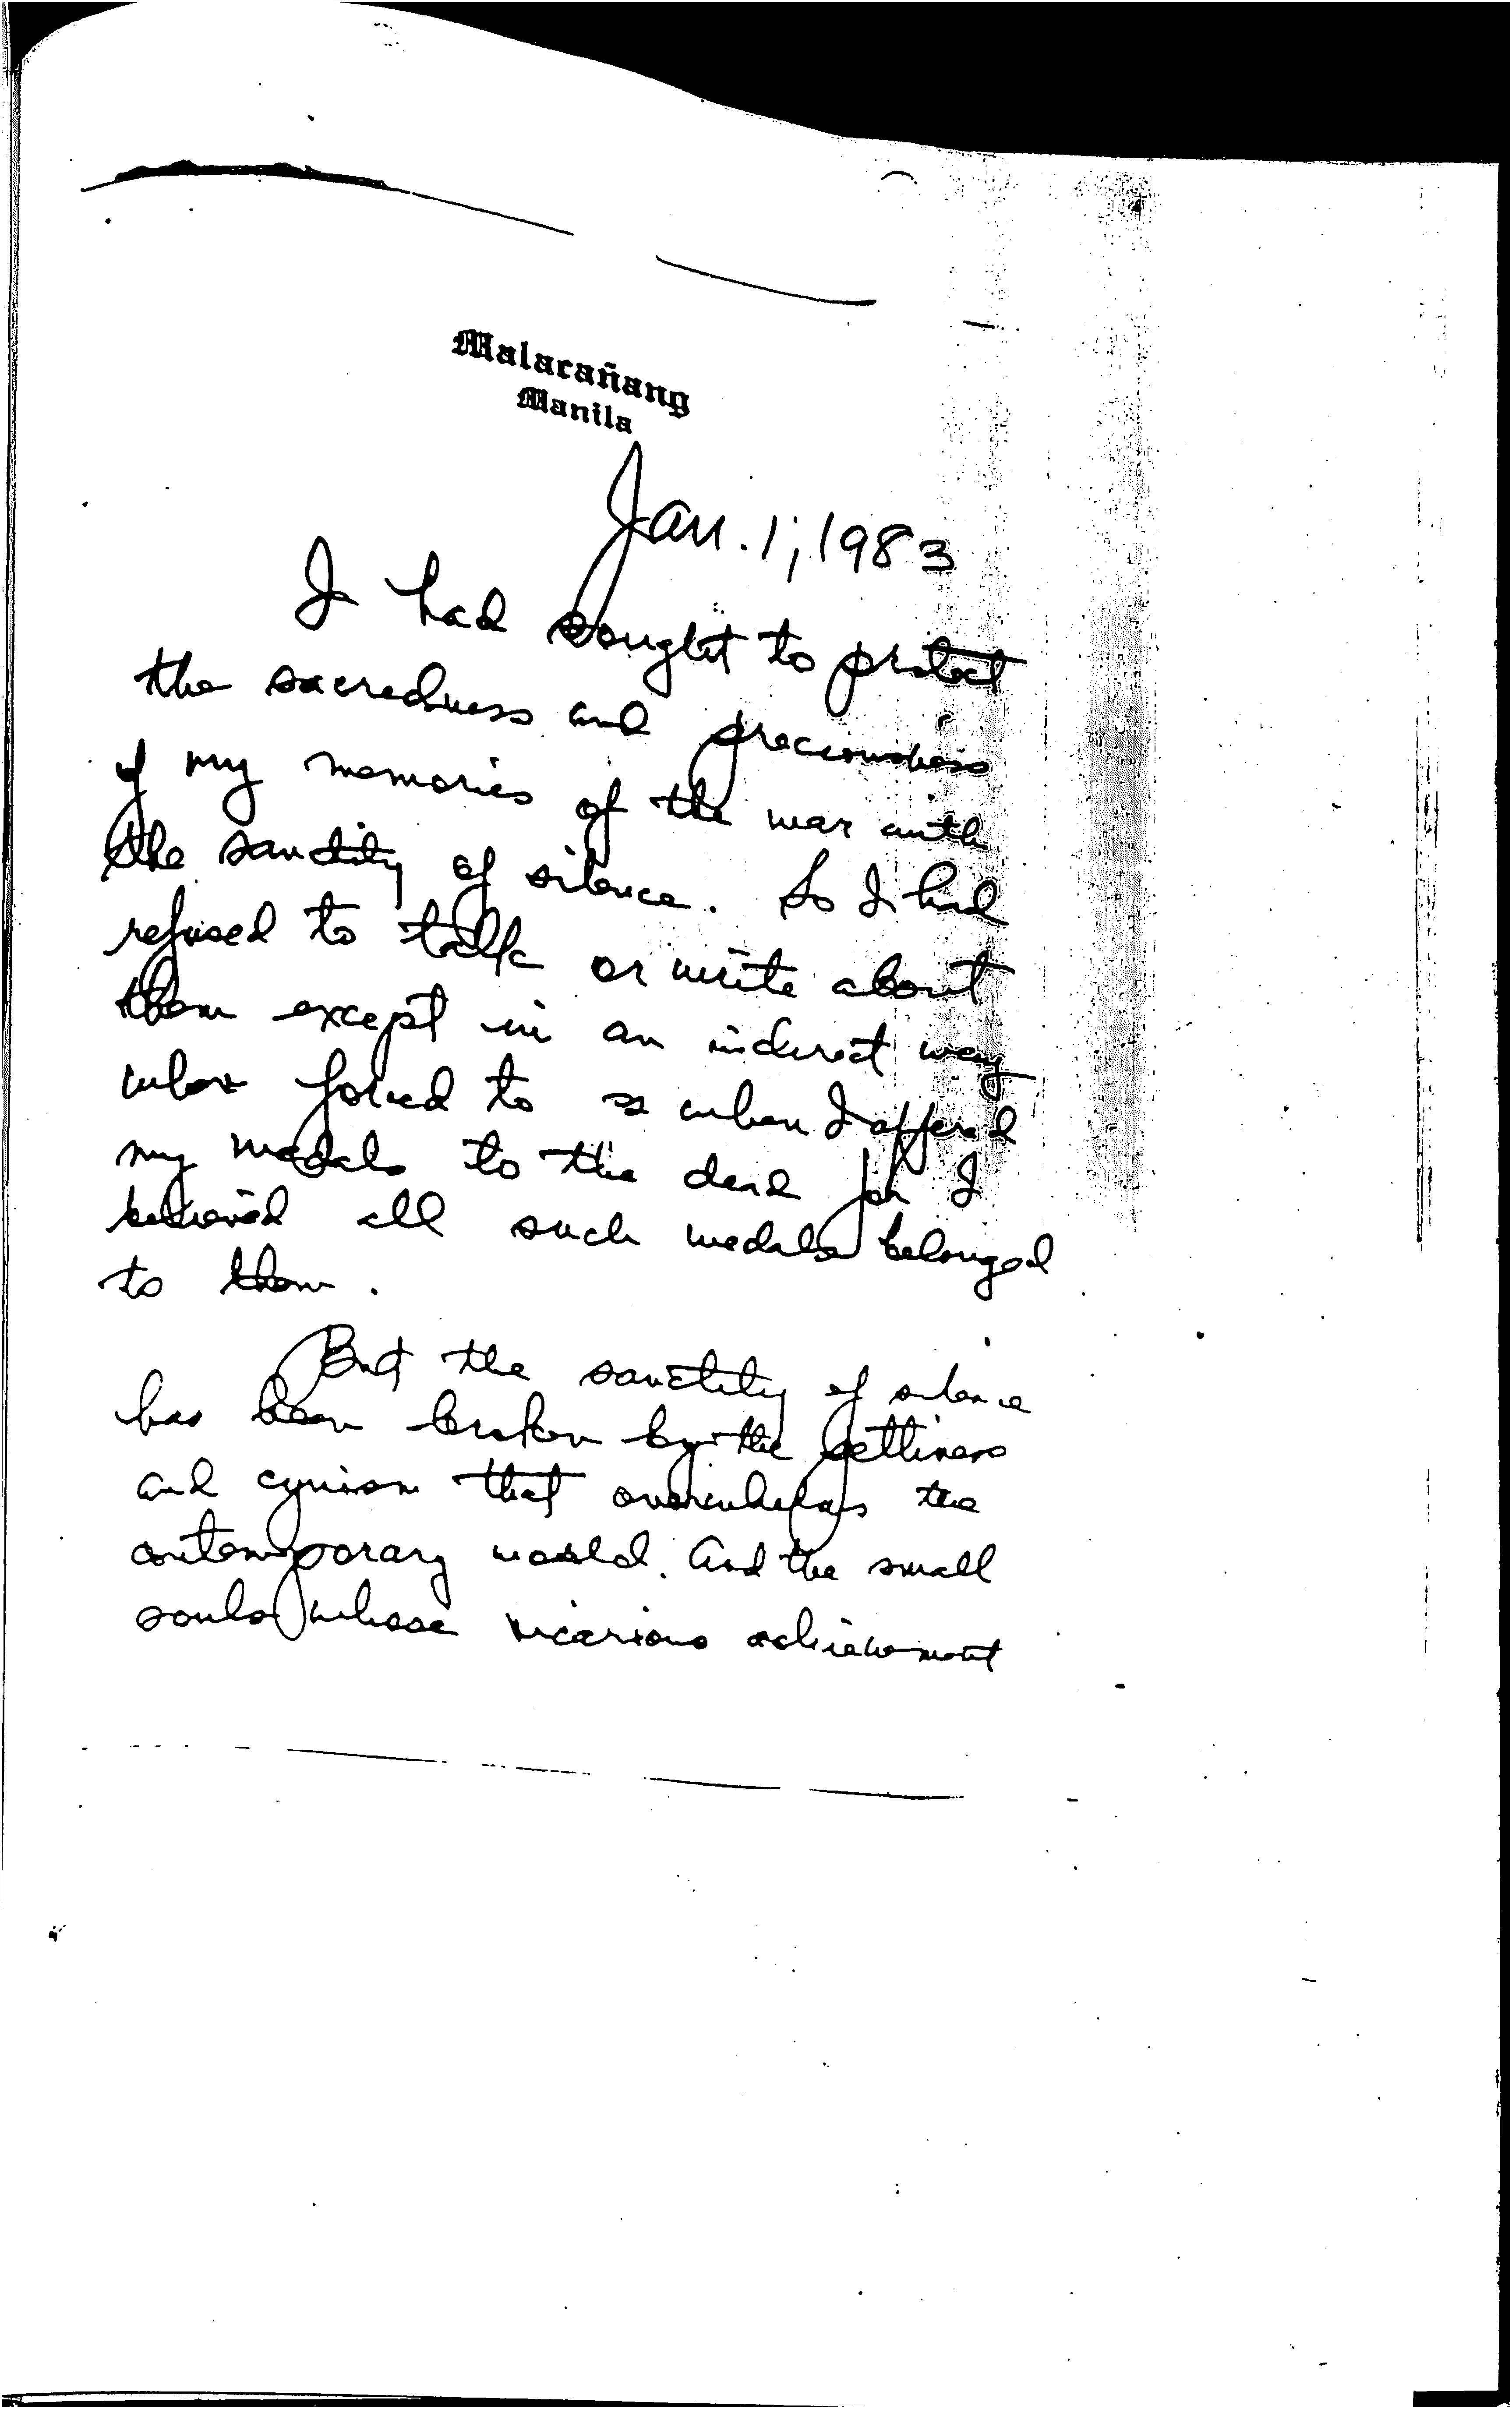 Malacañang
Manila
Jan. 1, 1983
I had sought to protect
the sacredness and preciousness
of my memories of the war with
the sanctity of silence. So I had
refused to talk or write about
them except in an indirect way
when forced to when I offered
my medals to the dead for I
believed all such medals belonged
to them.
But the sanctity of silence
has been broken by the pettiness
and cynism that overwhelms the
contemporary world. And the small
souls whose vicarious achievement